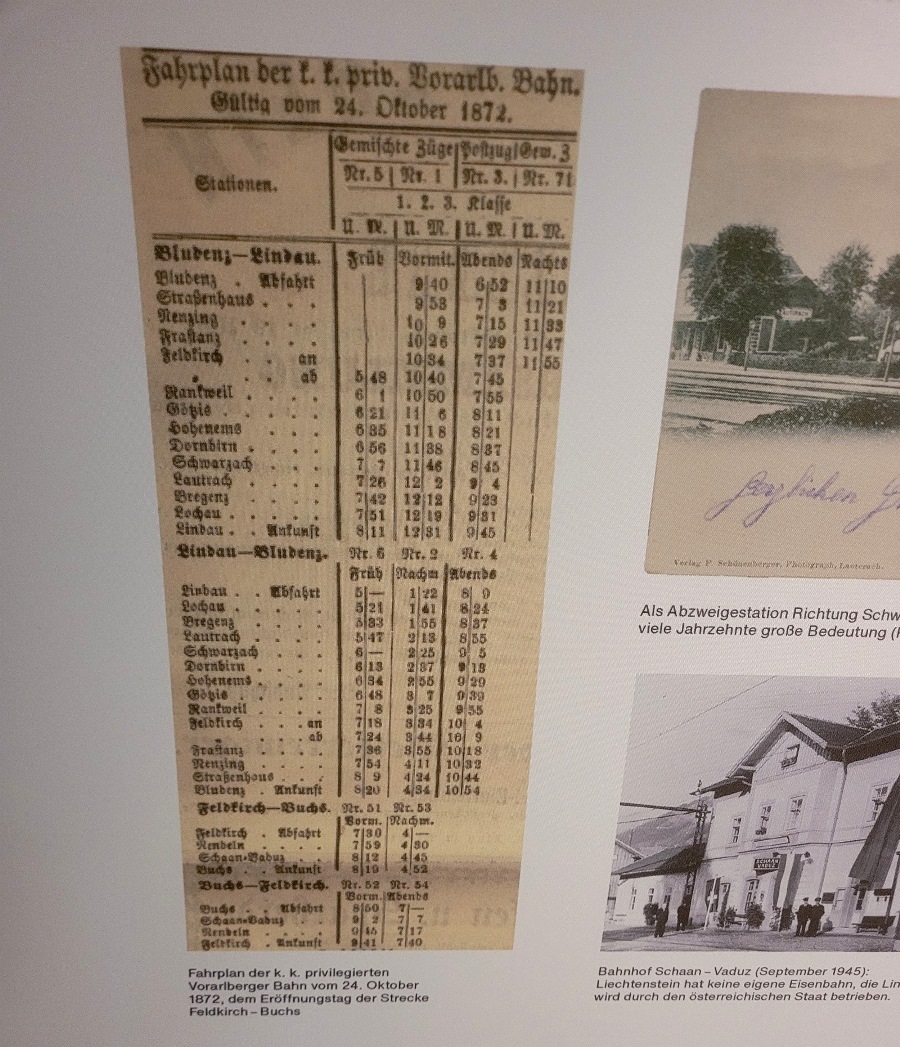 Fahrplan der k. k. priv. Vorarlb. Bahn.
Gültig vom 24. Oktober 1872.
Stationen.
Gemischte Züge Postzug Gem. Z
Nr. 5 Nr. 1 Nr. 3. Nr. 71
1. 2. 3. Klasse
U. M. U. M. U. M. U. M.
Bludenz—Lindau. Früh Vormit. Abends Nachts
Bludenz . Abfahrt 9 40 6 52 11 10
Straßenhaus . . . 9 53 7 3 11 21
Nenzing . . . . 10 9 7 15 11 33
Frastanz . . . . 10 26 7 29 11 47
Feldkirch . . an 10 34 7 37 11 55
„ . . ab 5 48 10 40 7 45
Rankweil . . . . 6 1 10 50 7 55
Götzis . . . . . 6 21 11 6 8 11
Hohenems . . . . 6 35 11 18 8 21
Dornbirn . . . . 6 56 11 38 8 37
Schwarzach . . . 7 7 11 46 8 45
Lautrach . . . . 7 26 12 2 9 4
Bregenz . . . . 7 42 12 12 9 23
Lochau . . . . . 7 51 12 19 9 31
Lindau . . Ankunft 8 11 12 31 9 45
Lindau—Bludenz. Nr. 6 Nr. 2 Nr. 4
Früh Nachm Abends
Lindau . . Abfahrt 5 — 1 22 8 9
Lochau . . . . . 5 21 1 41 8 24
Bregenz . . . . 5 33 1 55 8 37
Lautrach . . . . 5 47 2 13 8 55
Schwarzach . . . 6 — 2 25 9 5
Dornbirn . . . . 6 13 2 37 9 13
Hohenems . . . . 6 34 2 55 9 29
Götzis . . . . . 6 48 3 7 9 39
Rankweil . . . . 7 8 3 25 9 55
Feldkirch . . . an 7 18 3 34 10 4
„ . . . ab 7 24 3 44 10 9
Frastanz . . . . 7 36 3 55 10 18
Nenzing . . . . 7 54 4 11 10 32
Straßenhaus . . . 8 9 4 24 10 44
Bludenz . Ankunft 8 20 4 34 10 54
Feldkirch—Buchs. Nr. 51 Nr. 53
Vorm. Nachm.
Feldkirch . Abfahrt 7 30 4 —
Nendeln . . . . 7 59 4 30
Schaan-Vaduz . . . 8 12 4 45
Buchs . . Ankunft 8 19 4 52
Buchs—Feldkirch. Nr. 52 Nr. 54
Vorm. Abends
Buchs . . Abfahrt 8 50 7 —
Schaan-Vaduz . . . 9 2 7 7
Nendeln . . . . 7 17
Feldkirch . Ankunft 9 41 7 40
Fahrplan der k. k. privilegierten
Vorarlberger Bahn vom 24. Oktober
1872, dem Eröffnungstag der Strecke
Feldkirch – Buchs
LAUTERACH
Herzlichen
Verlag F. Schönenberger, Photograph, Lauterach.
Als Abzweigestation Richtung Schw
viele Jahrzehnte große Bedeutung (
SCHAAN
VADUZ
Bahnhof Schaan – Vaduz (September 1945):
Liechtenstein hat keine eigene Eisenbahn, die Lin
wird durch den österreichischen Staat betrieben.